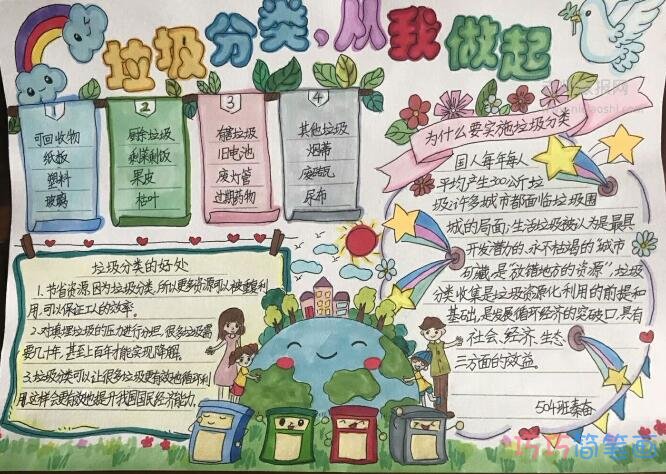 垃圾分类,从我做起
1
可回收物
纸板
塑料
玻璃
2
厨余垃圾
剩菜剩饭
果皮
枯叶
3
有害垃圾
旧电池
废灯管
过期药物
4
其他垃圾
烟蒂
尿布
为什么要实施垃圾分类
国人每年每人
平均产生300公斤垃
圾,许多城市都面临垃圾围
城的局面;生活垃圾被认为是最具
开发潜力的、永不枯竭的"城市
矿藏"是"放错地方的资源",垃圾
分类收集是垃圾资源化利用的前提和
基础,是发展循环经济的突破口,具有
社会、经济、生态
三方面的效益。
504班秦香
垃圾分类的好处
1.节省资源,因为垃圾分类,所以更多资源可以被重复利
用,可以保证工人的效率。
2.对填埋垃圾的压力进行分担,很多垃圾需
要几十年,甚至上百年才能实现降解。
3.垃圾分类可以让很多垃圾更有效地循环利
用,这样会更有效地提升我国国民经济能力。
巧巧简笔画